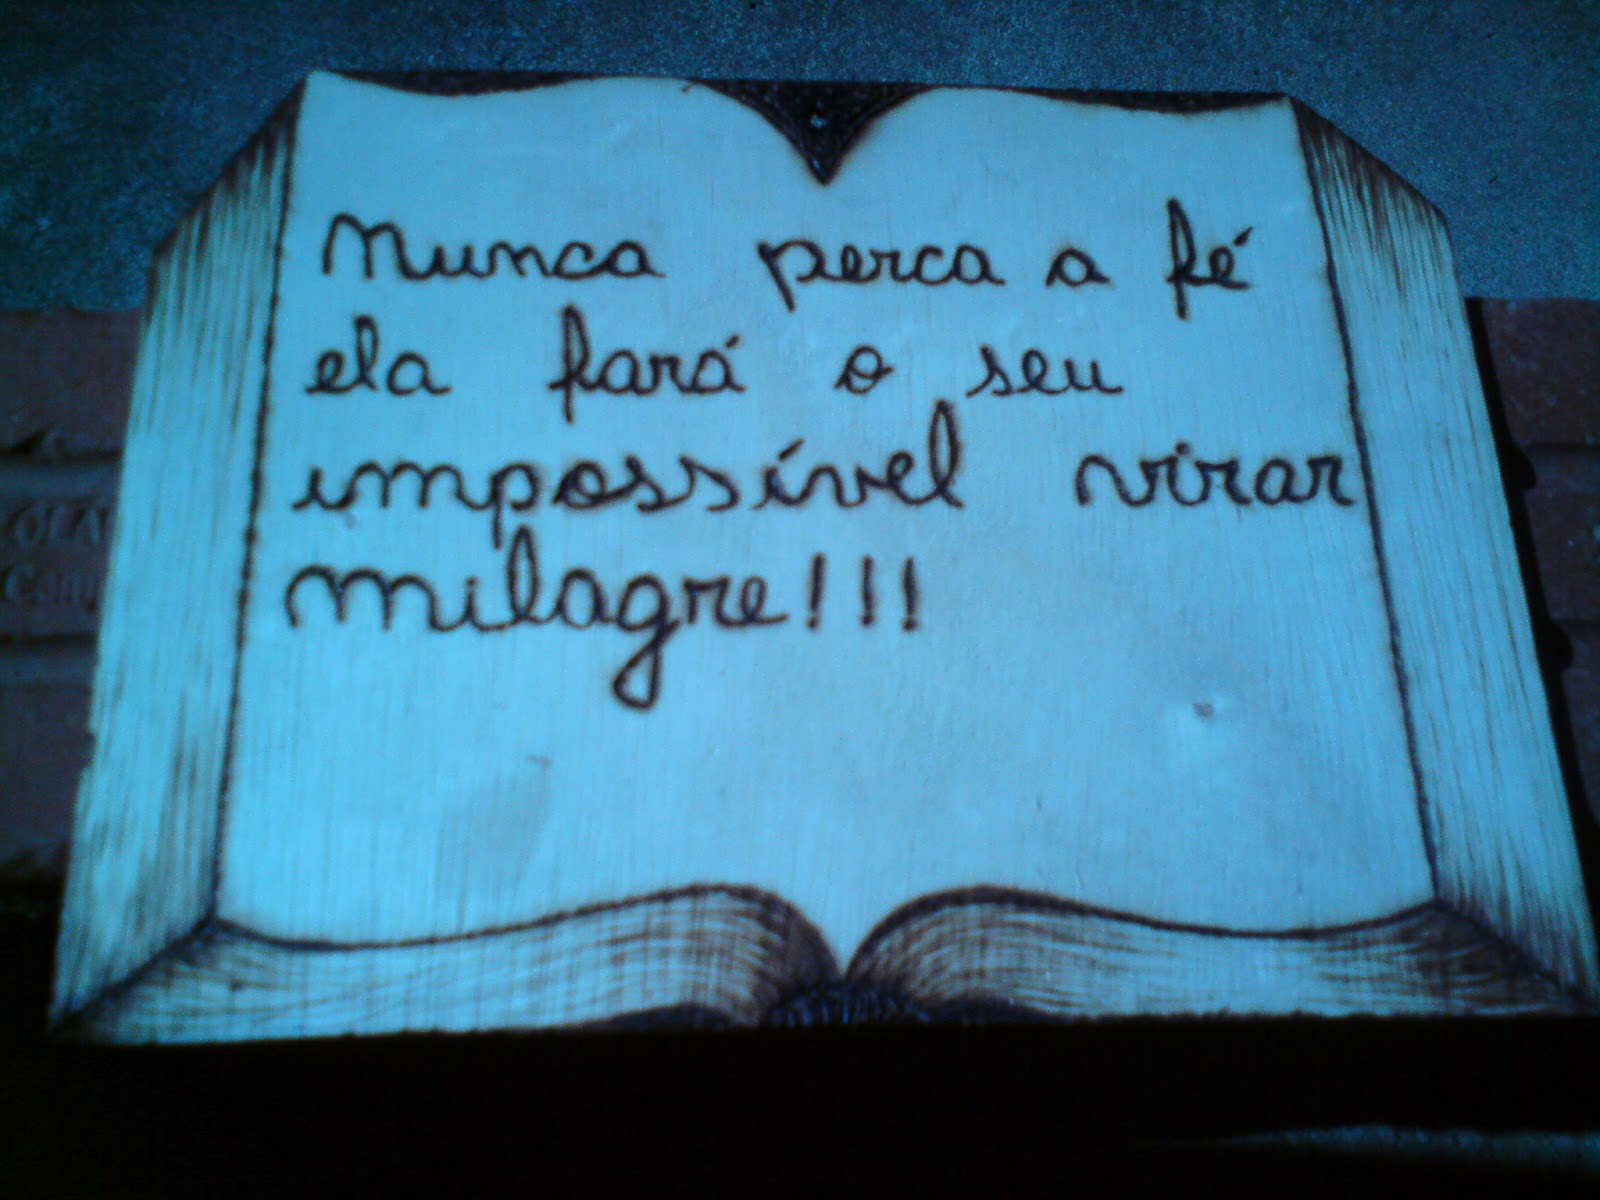 Nunca perca a fé
ela fará o seu
impossível virar
milagre!!!